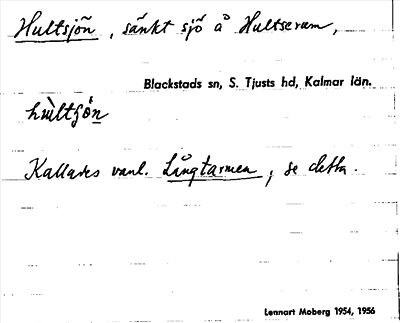 Hultsjön, sänkt sjö å Hultserum,
Blackstads sn, S. Tjusts hd, Kalmar län.
Kallades vanl. Långtarmen, se detta.
Lennart Moberg 1954, 1956